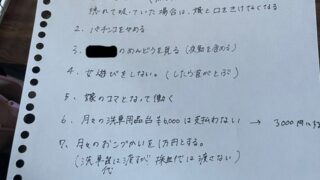 隠れて吸っていた場合は、嫁と口をきけなくなる
2. パチンコをやめる
3. のめんどうを見る(夜勤を含める)
4. 女遊びをしない。(したら首がとぶ)
5. 嫁のコマとなって働く
6. 月々の洗車用品台¥6,000は支払わない → 3000円に
7. 月々のおこづかいを1万円とする。
(洗車代は渡すが 散血代は渡さない)